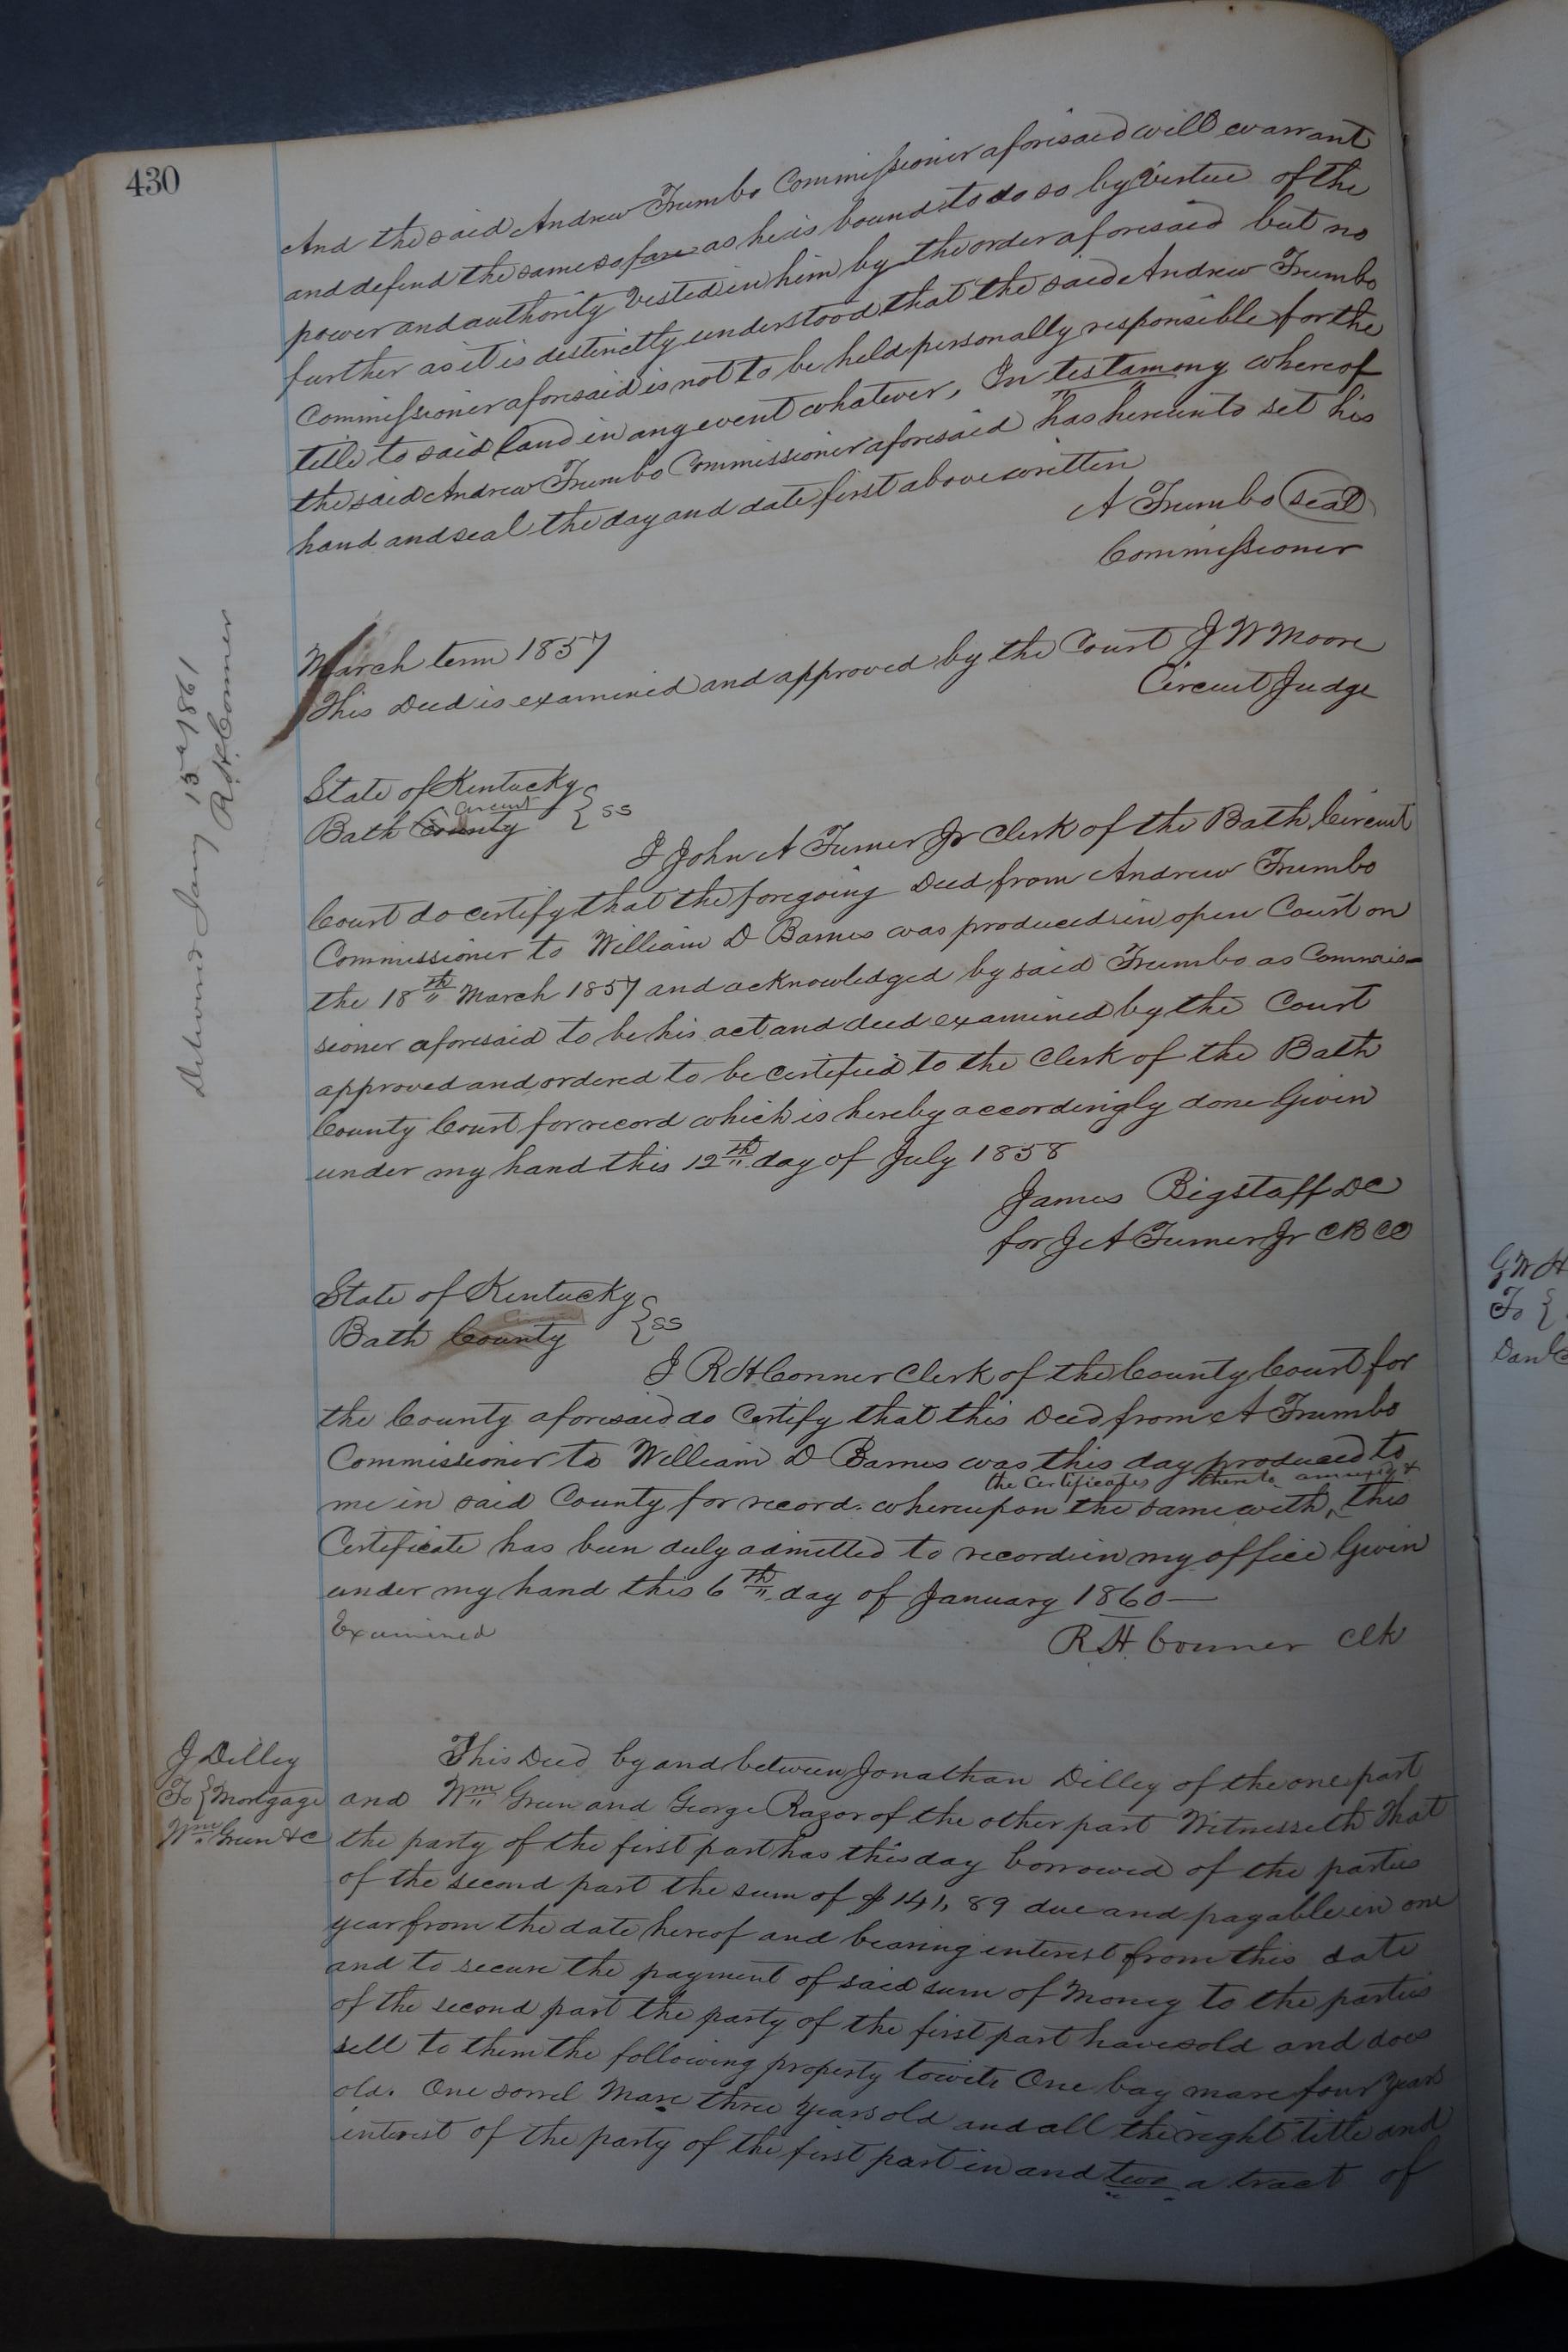 430
And the said Andrew Trumbo Commissioner aforesaid will warrant
and defend the same so fare as he is bound to do so by virtue of the
power and authority Vested in him by the order aforesaid but no
further as it is destinctly understood that the said Andrew Trumbo
Commissioner aforesaid is not to be held personally responsible for the
title to said land in any event whatever, In testamony whereof
the said Andrew Trumbo Commissioner aforesaid has hereunto set his
hand and seal the day and date first above written
A Trumbo (seal)
Commissioner
March term 1857
This Deed is examined and approved by the Court J W Moore
Circuit Judge
Delivered Jany 15th 1861
R. H. Conner
State of Kentucky } ss
Circuit
Bath County
I John A Turner Jr Clerk of the Bath Circuit
Court do certify that the foregoing Deed from Andrew Trumbo
Commissioner to William D Barnes was produced in open Court on
the 18th March 1857 and acknowledged by said Trumbo as Commis-
sioner aforesaid to be his act and deed examined by the Court
approved and ordered to be certified to the Clerk of the Bath
County Court for record which is hereby accordingly done Given
under my hand this 12th day of July 1858
James Bigstaff DC
for J A Turner Jr CBCC
State of Kentucky } ss
Bath County
I R H Conner Clerk of the County Court for
the County aforesaid do Certify that this Deed from A Trumbo
Commissioner to William D Barnes was this day produced to
the Certificates thereto annexed &
me in said County for record. whereupon the same with ^ this
Certificate has been duly admitted to record in my office Given
under my hand this 6th day of January 1860—
Examined
R. H. Conner Clk
J Dilley
To } Mortgage
Wm Green &c
This Deed by and between Jonathan Dilley of the one part
and Wm Green and George Razor of the other part Witnesseth That
the party of the first part has this day borrowed of the parties
of the second part the sum of $141,89 due and payable in one
year from the date hereof and bearing interest from this date
and to secure the payment of said sum of Money to the parties
of the second part the party of the first part have sold and does
sell to them the following property towit. One bay mare four years
old. One sorrel Mare three years old and all the right title and
interest of the party of the first part in and two a tract of
G W H
To {
Danl